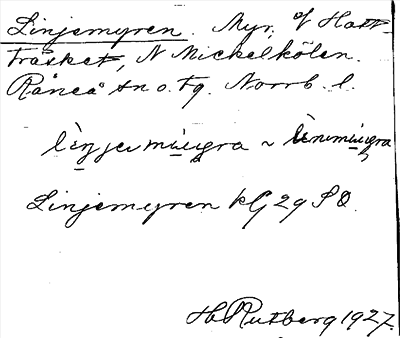 Linjemyren. Myr, V Hatt-
träsket, N Mickelkölen.
Råneå sn o. tg. Norrb. l.
lìnjamùura ~
Linjemyren kG 29 SO.
H. Rutberg 1927.